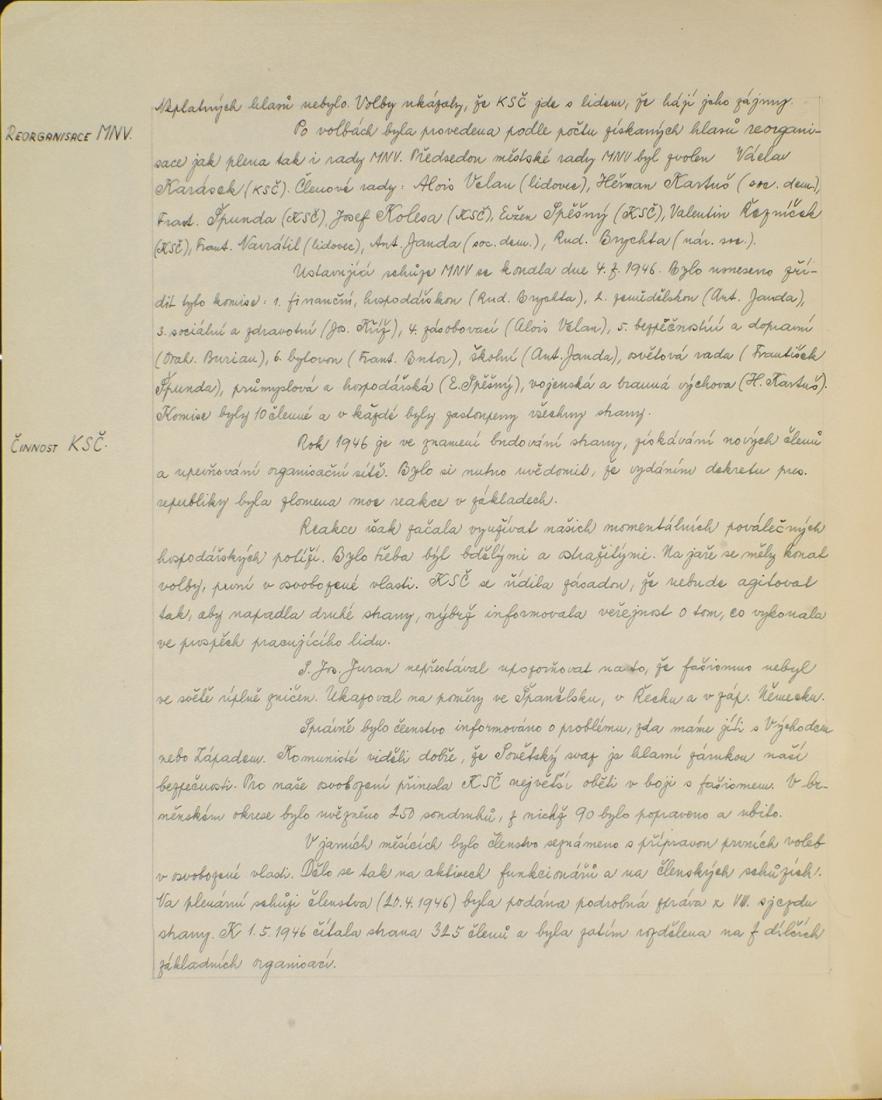 Neplatných hlasů nebylo. Volby ukázaly, že KSČ jde s lidem, že hájí jeho zájmy.
REORGANISACE MNV.
Po volbách byla provedena podle počtu získaných hlasů reorgani-
sace jak plena tak i rady MNV. Předsedou městské rady MNV byl zvolen Václav
Karásek (KSČ). Členové rady: Alois Velan (lidovec), Heřman Kartuš (soc. dem.),
Frant. Špunda (KSČ), Josef Kolesa (KSČ), Evžen Spěšný (KSČ), Valentin Řezníček
(KSČ), Frant. Navrátil (lidovec), Ant. Janda (soc. dem.), Rud. Brychta (nár. soc.).
Ustavující schůze MNV se konala dne 4. 7. 1946. Bylo usneseno zří-
dit tyto komise: 1. finanční, hospodářskou (Rud. Brychta), 2. zemědělskou (Ant. Janda),
3. sociální a zdravotní (Jos. Kříž), 4. zásobovací (Alois Velan), 5. bezpečnostní a dopravní
(Drah. Burian), 6. bytovou (Frant. Butor), školní (Ant. Janda), osvětová rada (František
Špunda), průmyslová a hospodářská (E. Spěšný), vojenská a branná výchova (H. Kartuš).
Komise byly 10členné a v každé byly zastoupeny všechny strany.
ČINNOST KSČ.
Rok 1946 je ve znamení budování strany, získávání nových členů
a upevňování organisační sítě. Bylo si nutno uvědomit, že vydáním dekretu pres.
republiky byla zlomena moc reakce v základech.
Reakce však začala využívat našich momentálních poválečných
hospodářských potíží. Bylo třeba být bdělými a ostražitými. Na jaře se měly konat
volby, první v osvobozené vlasti. KSČ se řídila zásadou, že nebude agitovat
tak, aby napadla druhé strany, nýbrž informovala veřejnost o tom, co vykonala
ve prospěch pracujícího lidu.
S. Jos. Juran nepřestával upozorňovat na to, že fašismus nebyl
ve světě úplně zničen. Ukazoval na poměry ve Španělsku, v Řecku a v záp. Německu.
Správně bylo členstvo informováno o problému, zda máme jíti s Východem
nebo Západem. Komunisté viděli dobře, že Sovětský svaz je hlavní zárukou naší
bezpečnosti. Pro naše osvobození přinesla KSČ největší oběti v boji s fašismem. V br-
něnském okrese bylo uvězněno 250 soudruhů, z nichž 90 bylo popraveno a ubito.
V jarních měsících bylo členstvo seznámeno s přípravou prvních voleb
v osvobozené vlasti. Dělo se tak na aktivech funkcionářů a na členských schůzích.
Na plenární schůzi členstva (20. 4. 1946) byla podána podrobná zpráva z VIII. sjezdu
strany. K 1. 5. 1946 čítala strana 325 členů a byla zatím rozdělena na 7 dílčích
základních organisací.